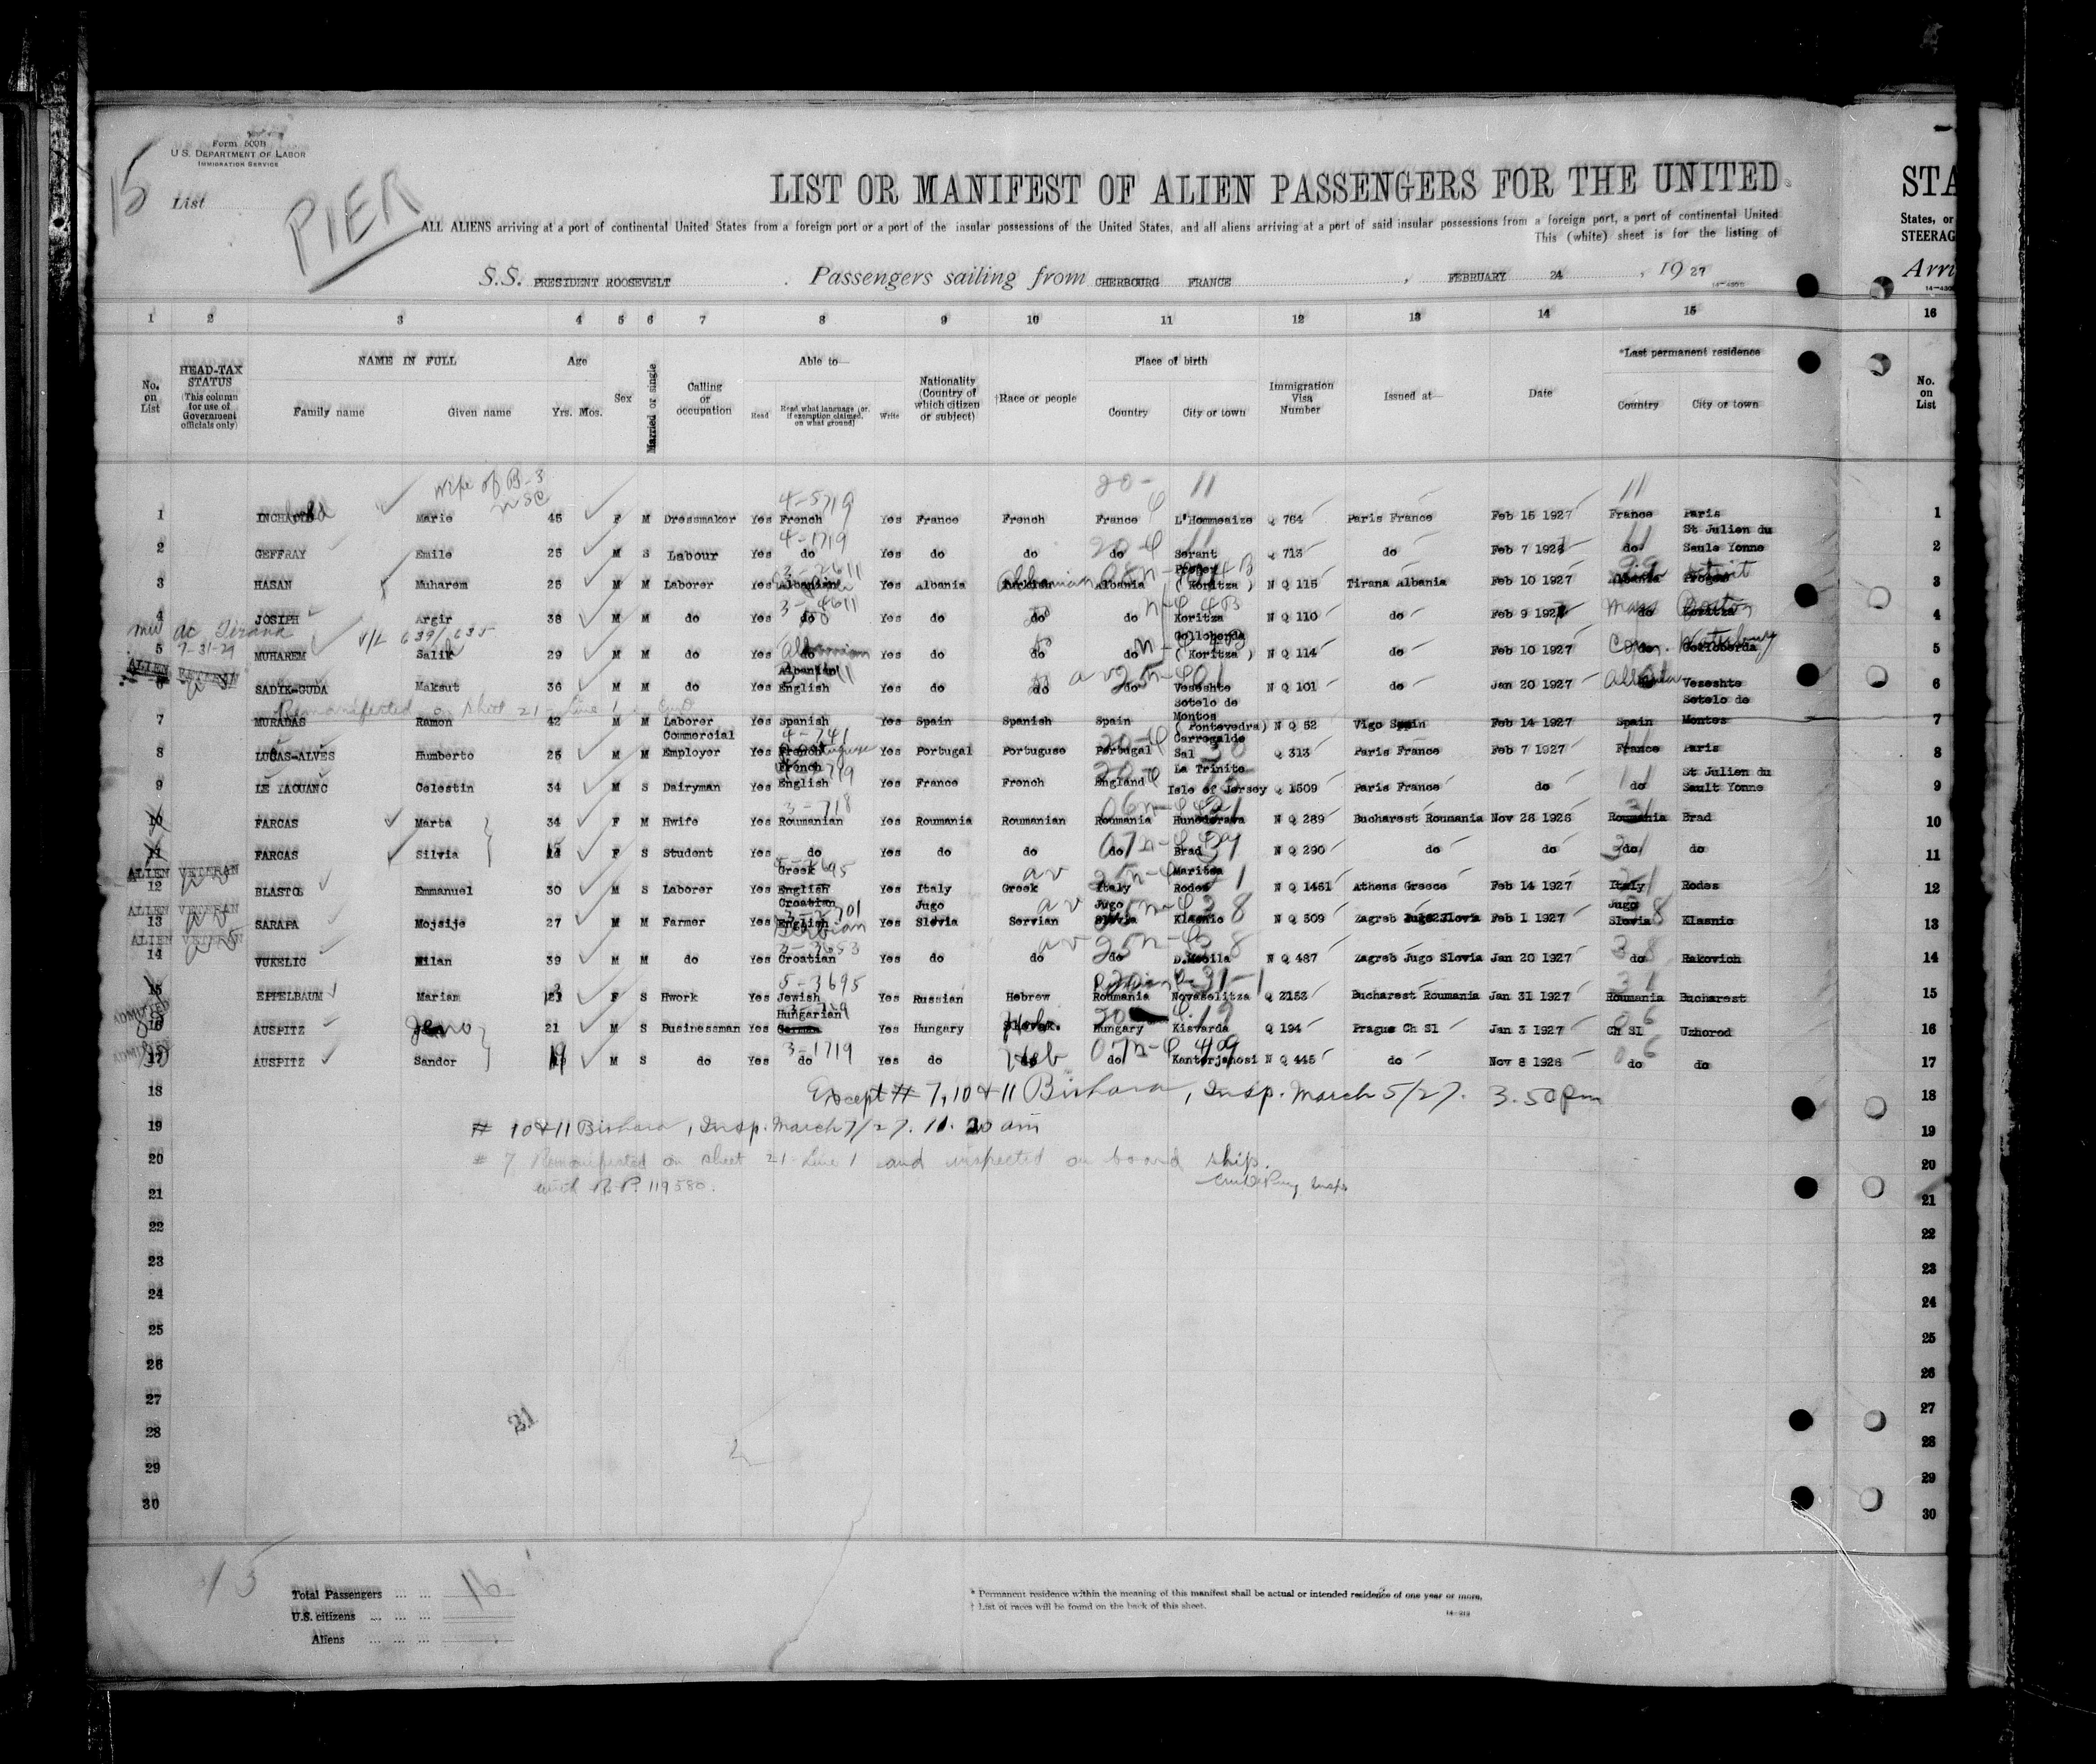 Form 500B
U.S. DEPARTMENT OF LABOR
IMMIGRATION SERVICE
15
List
PIER
LIST OR MANIFEST OF ALIEN PASSENGERS FOR THE UNITED
STA
ALL ALIENS arriving at a port of continental United States from a foreign port or a port of the insular possessions of the United States, and all aliens arriving at a port of said insular possessions from a foreign port, a port of continental United
States, or
This (white) sheet is for the listing of
STEERAG
S.S. PRESIDENT ROOSEVELT Passengers sailing from CHERBOURG FRANCE, FEBRUARY 24, 1927
Arri
1 2 3 4 5 6 7 8 9 10 11 12 13 14 15 16
No. on List
HEAD-TAX STATUS (This column for use of Government officials only)
NAME IN FULL
Family name Given name
Age
Yrs. Mos.
Sex
Married or single
Calling or occupation
Able to—
Read
Read what language (or, if exemption claimed, on what ground)
Write
Nationality (Country of which citizen or subject)
†Race or people
Place of birth
Country City or town
Immigration Visa Number
Issued at—
Date
*Last permanent residence
Country City or town
No. on List
Wife of
1 Marie 45 F M Dressmaker Yes French Yes France French France L'Hommeaize Q 764 Paris France Feb 15 1927 France Paris 1
2 GEFFRAY Emile 25 M S Labour Yes do Yes do do do Serant Q 713 do Feb 7 1927 do St Julien du Saule Yonne 2
3 HASAN Muharem 25 M M Laborer Yes Albanian Yes Albania Albanian Albania (Koritza) N Q 115 Tirana Albania Feb 10 1927 Detroit 3
4 JOSIPH Argir 38 M M do Yes do Yes do do do Koritza N Q 110 do Feb 9 1927 Mass Boston 4
5 MUHAREM Salih 29 M M do Yes Albanian Yes do do do Golloborda (Koritza) N Q 114 do Feb 10 1927 Conn. Waterbury 5
ALIEN VETERAN
6 SADIK-GUDA Maksut 36 M M do Yes Albanian English Yes do do do Veseshte N Q 101 do Jan 20 1927 Albania Vezeshte 6
Remanifested on sheet 21 - Line 1
7 MURADAS Ramon 42 M M Laborer Yes Spanish Yes Spain Spanish Spain Sotelo de Montos (Pontevedra) N Q 52 Vigo Spain Feb 14 1927 Spain Sotelo de Montes 7
8 LUCAS-ALVES Humberto 25 M M Commercial Employer Yes Portuguese Yes Portugal Portuguse Portugal Carregalde Sal Q 313 Paris France Feb 7 1927 France Paris 8
9 LE YAOUANC Celestin 34 M S Dairyman Yes French English Yes France French England La Trinite Isle of Jersey Q 1509 Paris France do do St Julien du Sault Yonne 9
10 FARCAS Marta 34 F M Hwife Yes Roumanian Yes Roumania Roumanian Roumania N Q 289 Bucharest Roumania Nov 26 1926 Roumania Brad 10
11 FARCAS Silvia F S Student Yes do Yes do do do Brad N Q 290 do do do do 11
ALIEN VETERAN
12 BLASTOS Emmanuel 30 M S Laborer Yes Greek English Yes Italy Greek Italy Maritsa Rodes N Q 1461 Athens Greece Feb 14 1927 Italy Rodes 12
ALIEN VETERAN
13 SARAPA Mojsije 27 M M Farmer Yes Croatian English Serbian Yes Jugo Slovia Servian Jugo Slovia Klasnic N Q 509 Zagreb Feb 1 1927 Jugo Slovia Klasnic 13
ALIEN VETERAN
14 VUKELIC Milan 39 M M do Yes Croatian Yes do do do N Q 487 Zagreb Jugo Slovia Jan 20 1927 do Rakovich 14
15 EPPELBAUM Mariam F S Hwork Yes Jewish Yes Russian Hebrew Roumania Novaselitza Q 2153 Bucharest Roumania Jan 31 1927 Roumania Bucharest 15
ADMITTED
16 AUSPITZ Jeno 21 M S Businessman Yes Hungarian German Yes Hungary Heb Hungary Kisvarda Q 194 Prague Ch Sl Jan 3 1927 Ch Sl Uzhorod 16
ADMITTED
17 AUSPITZ Sandor 19 M S do Yes do Yes do Heb do Kantorjanosi N Q 445 do Nov 8 1926 do do 17
18 Except # 7, 10 & 11 Bishara, Insp. March 5/27. 3.50 pm 18
19 # 10 & 11 Bishara, Insp. March 7/27. 11.20 am 19
20 # 7 Remanifested on sheet 21 Line 1 and inspected on board ship. 20
21 with R.P. 119580. 21
22 22
23 23
24 24
25 25
26 26
27 27
28 28
29 29
30 30
15
Total Passengers ... ... 16
U.S. citizens ... ... ...
Aliens ... ... ...
* Permanent residence within the meaning of this manifest shall be actual or intended residence of one year or more.
† List of races will be found on the back of this sheet.